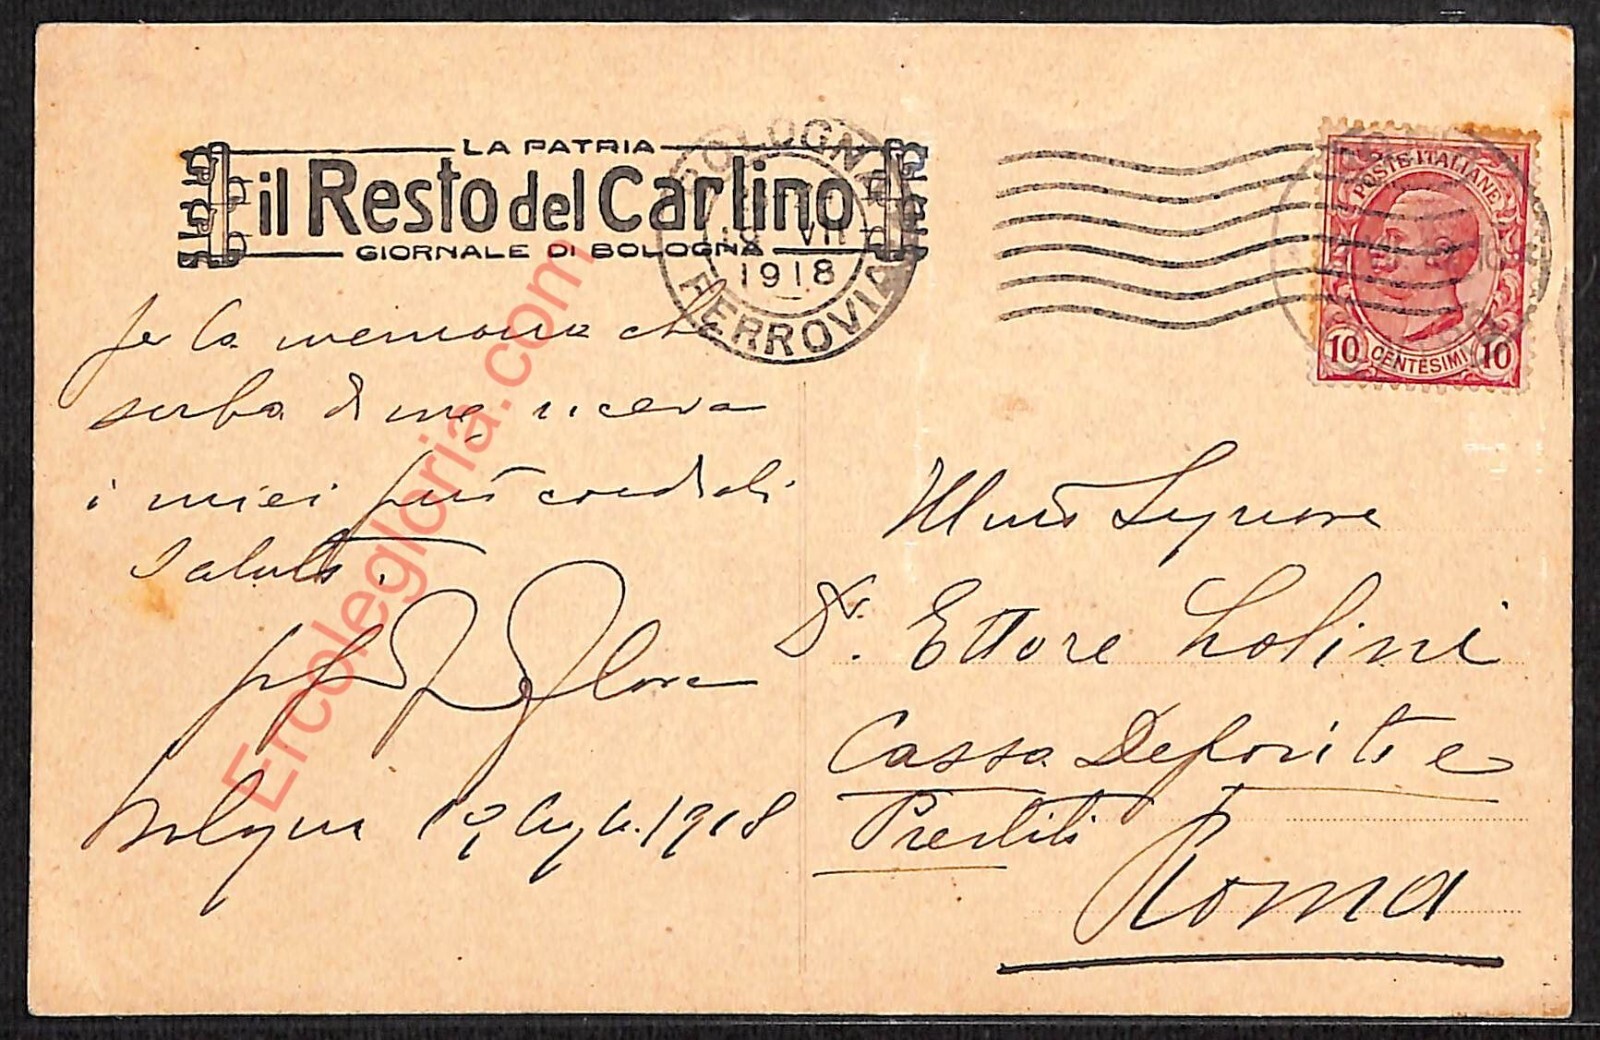 LA PATRIA
il Resto del Carlino
GIORNALE DI BOLOGNA
BOLOGNA
VII
1918
FERROVIA
POSTE ITALIANE
10 CENTESIMI 10
per la memoria che
serba di me, riceva
i miei più cordiali
saluti.
Bologna 19 Luglio 1918
Illmo Signore
Dr. Ettore Lolini
Cassa Depositi e
Prestiti
Roma
Ercolegloria.com